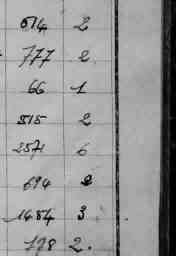 614 2
777 2
66 1
515 2
2571 6
694 2
1484 3
178 2.